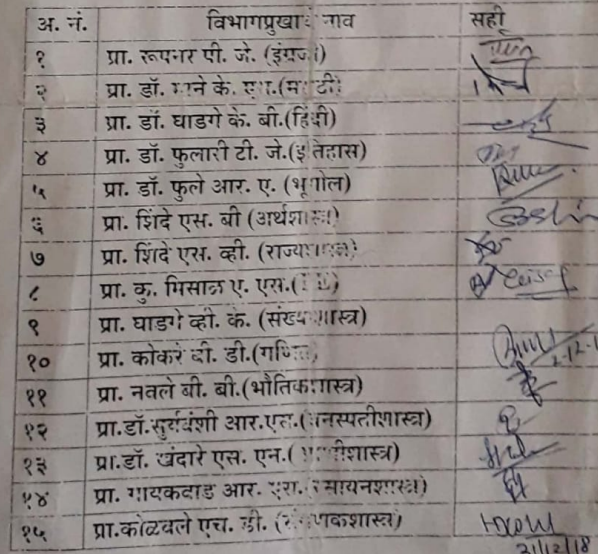 अ. नं. विभागप्रमुखाचे नाव सही
१ प्रा. रूपनर पी. जे. (इंग्रजी)
२ प्रा. डॉ. माने के. एम.(मराठी)
३ प्रा. डॉ. घाडगे के. बी.(हिंदी)
४ प्रा. डॉ. फुलारी टी. जे.(इतिहास)
५ प्रा. डॉ. फुले आर. ए. (भूगोल)
६ प्रा. शिंदे एस. बी (अर्थशास्त्र)
७ प्रा. शिंदे एस. व्ही. (राज्यशास्त्र)
८ प्रा. कु. मिसाळ ए. एस.
९ प्रा. घाडगे व्ही. के. (संख्याशास्त्र)
१० प्रा. कोकरे डी. डी.(गणित)
११ प्रा. नवले बी. बी.(भौतिकशास्त्र)
१२ प्रा.डॉ.सुर्यवंशी आर.एस.(वनस्पतीशास्त्र)
१३ प्रा.डॉ. खंदारे एस. एन.(प्राणीशास्त्र)
१४ प्रा. गायकवाड आर. एस.(रसायनशास्त्र)
१५ प्रा.कोळवले एच. डी. (संगणकशास्त्र)
21/12/18